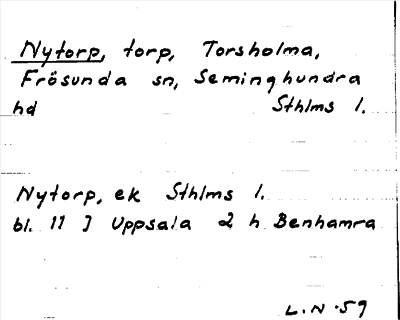 Nytorp, torp, Torsholma,
Frösunda sn, Seminghundra
hd Sthlms l.
Nytorp, ek Sthlms l.
bl. 11 J Uppsala 2 h Benhamra
L.N. 59